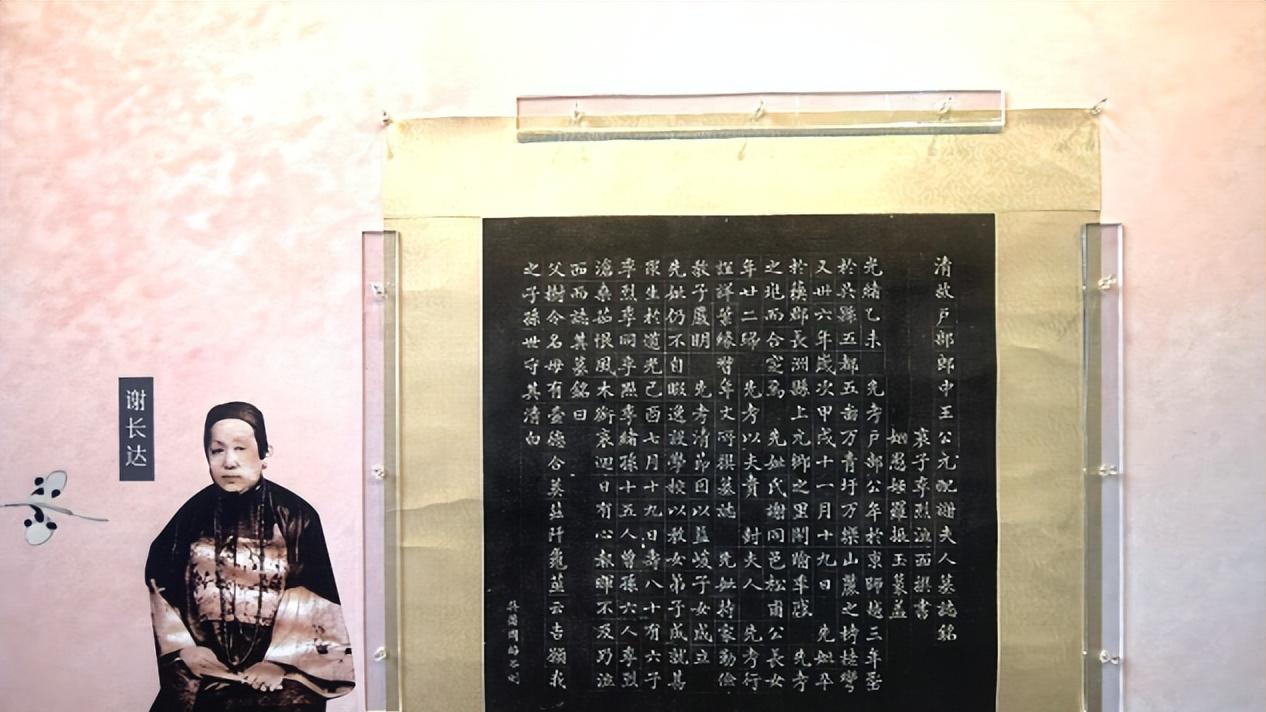 清故戶部郎中王公元配謝夫人墓誌銘
哀子季烈泣血撰書
姻愚姪羅振玉篆蓋
光緒乙未 先考戶部公卒於京師越三年塟
於吳縣五都五啚万青圩万樂山麓之
又卅六年歲次甲戌十一月十九日 先妣卒
於蘇郡長洲縣上元鄉之里閈踰年啟 先考
之兆而合窆焉 先妣氏謝同邑松甫公長女
年廿二歸 先考以夫貴 封夫人 先考行
誼詳葉緣督年丈所撰墓誌 先妣持家勤儉
教子嚴明 先考清節因以益峻子女成立
先妣仍不自暇逸設學校以教女弟子成就甚
眾生於道光己酉七月十九日壽八十有六子
季烈季同季點季緒孫十五人曾孫六人季烈
滄桑茹恨風木銜哀迎日有心春暉不及乃泣
血而誌其墓銘曰
父樹令名母有壼德合葬茲阡龜筮云吉願我
之子孫世守其清白
谢长达